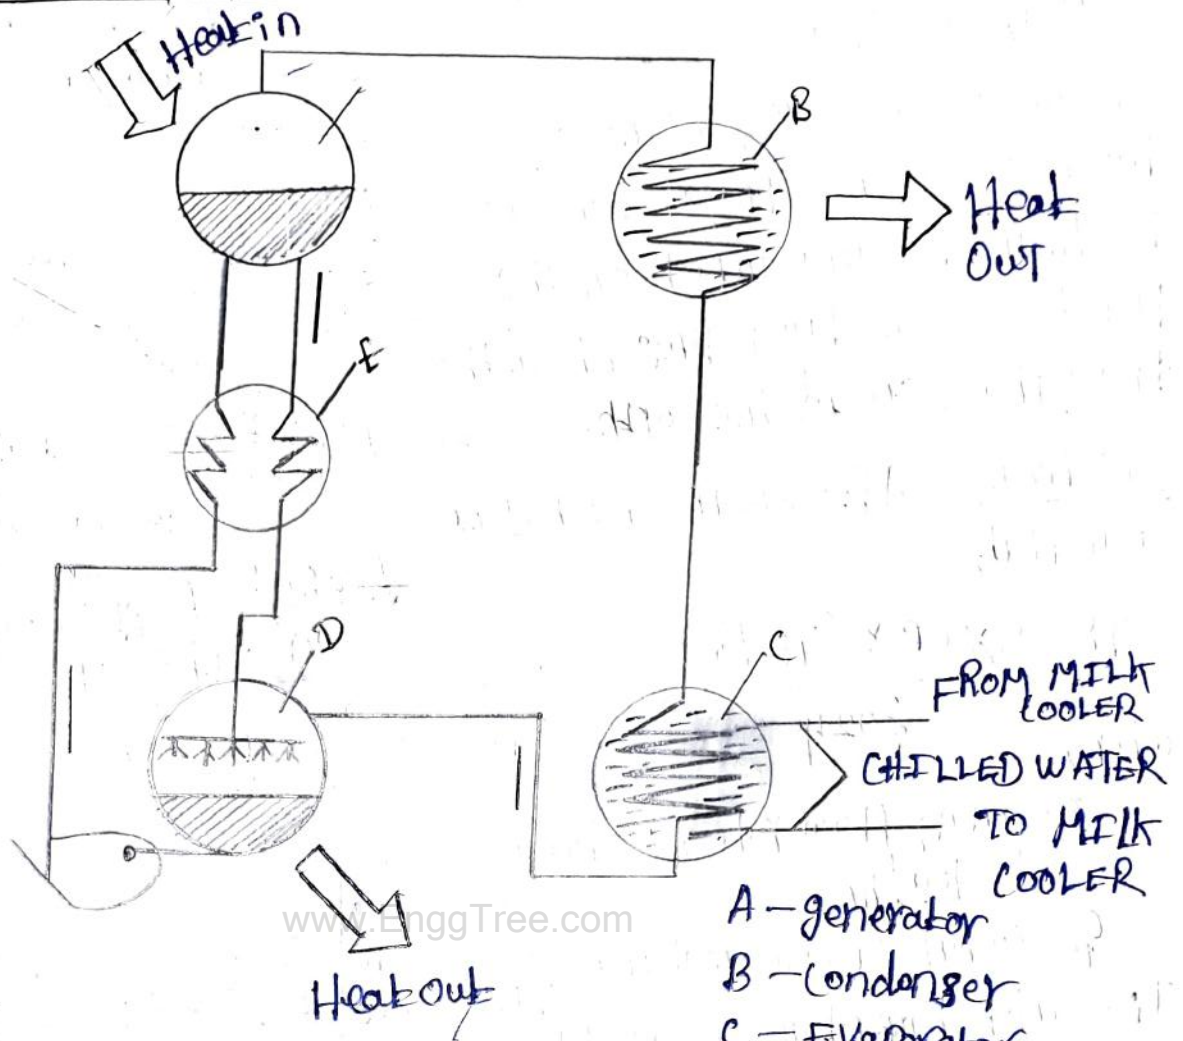 Heat in
B
Heat
Out
E
D
C
FROM MILK
COOLER
CHILLED WATER
TO MILK
COOLER
www.EnggTree.com
Heat out
A - generator
B - Condenser
C - Evaporator